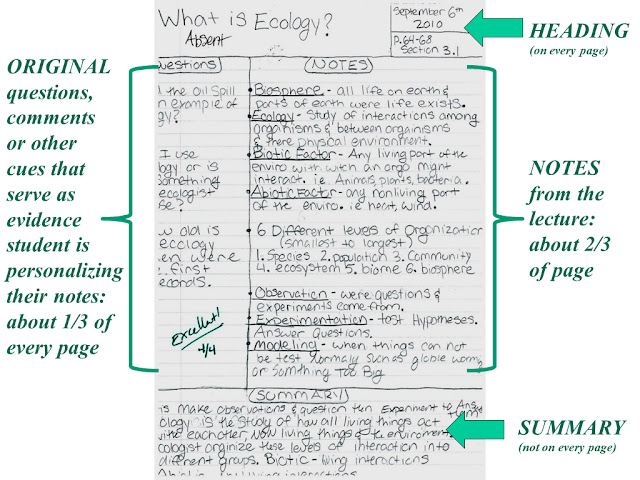 What is Ecology?
Absent
September 6th
2010
P.64-68
Section 3.1
HEADING
(on every page)
ORIGINAL
questions,
comments
or other
cues that
serve as
evidence
student is
personalizing
their notes:
about 1/3 of
every page
uestions)
the oil spill
n example of
gy?
I use
logy or is
something
ecologist
se?
w old is
ecology
en were
e first
ecords.
Excellent!
4/4
(NOTES)
• Biosphere - all life on earth &
parts of earth were life exists.
• Ecology - Study of interactions among
organisms & between organisms
& there physical environment.
• Biotic Factor - Any living part of the
enviro with wich an orgo might
interact. i.e. Animals, plants, bacteria.
• Abiotic Factor - any nonliving part
of the enviro. ie heat, wind.
• 6 Different levels of Organization
(smallest to largest)
1. Species 2. population 3. Community
4. ecosystem 5. biome 6. biosphere
• Observation - were questions &
experiments come from.
• Experimentation - test Hypotheses.
Answer Questions.
• Modeling - when things can not
be test normaly such as globle
or something Too Big
NOTES
from the
lecture:
about 2/3
of page
(SUMMARY)
is make observations & question then Experiment to Answer
them
ology is the study of how all living things act
with eachother, NON living things & the environment.
cologist orginize these levels of interaction into
different groups. Biotic - living interactions
living interactions
SUMMARY
(not on every page)